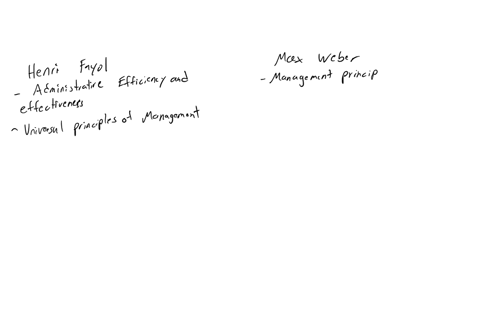 Henri Fayol
- Administrative Efficiency and
effectiveness
- Universal principles of Management
Max Weber
- Management princip